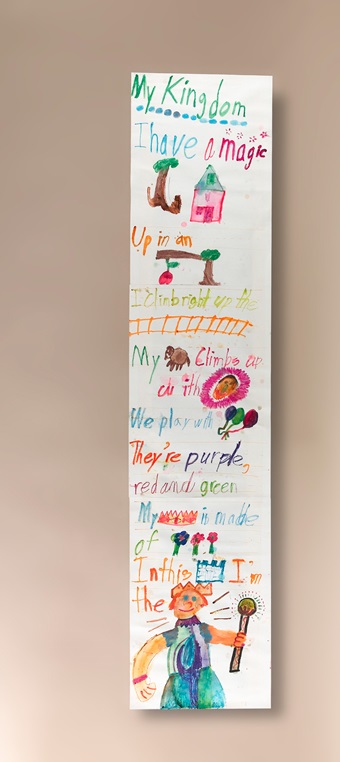 My Kingdom
I have a magic
Up in an
I climb right up the
My Climbs up
with
We play with
They're purple,
red and green
My is made
of
In this I'm
the